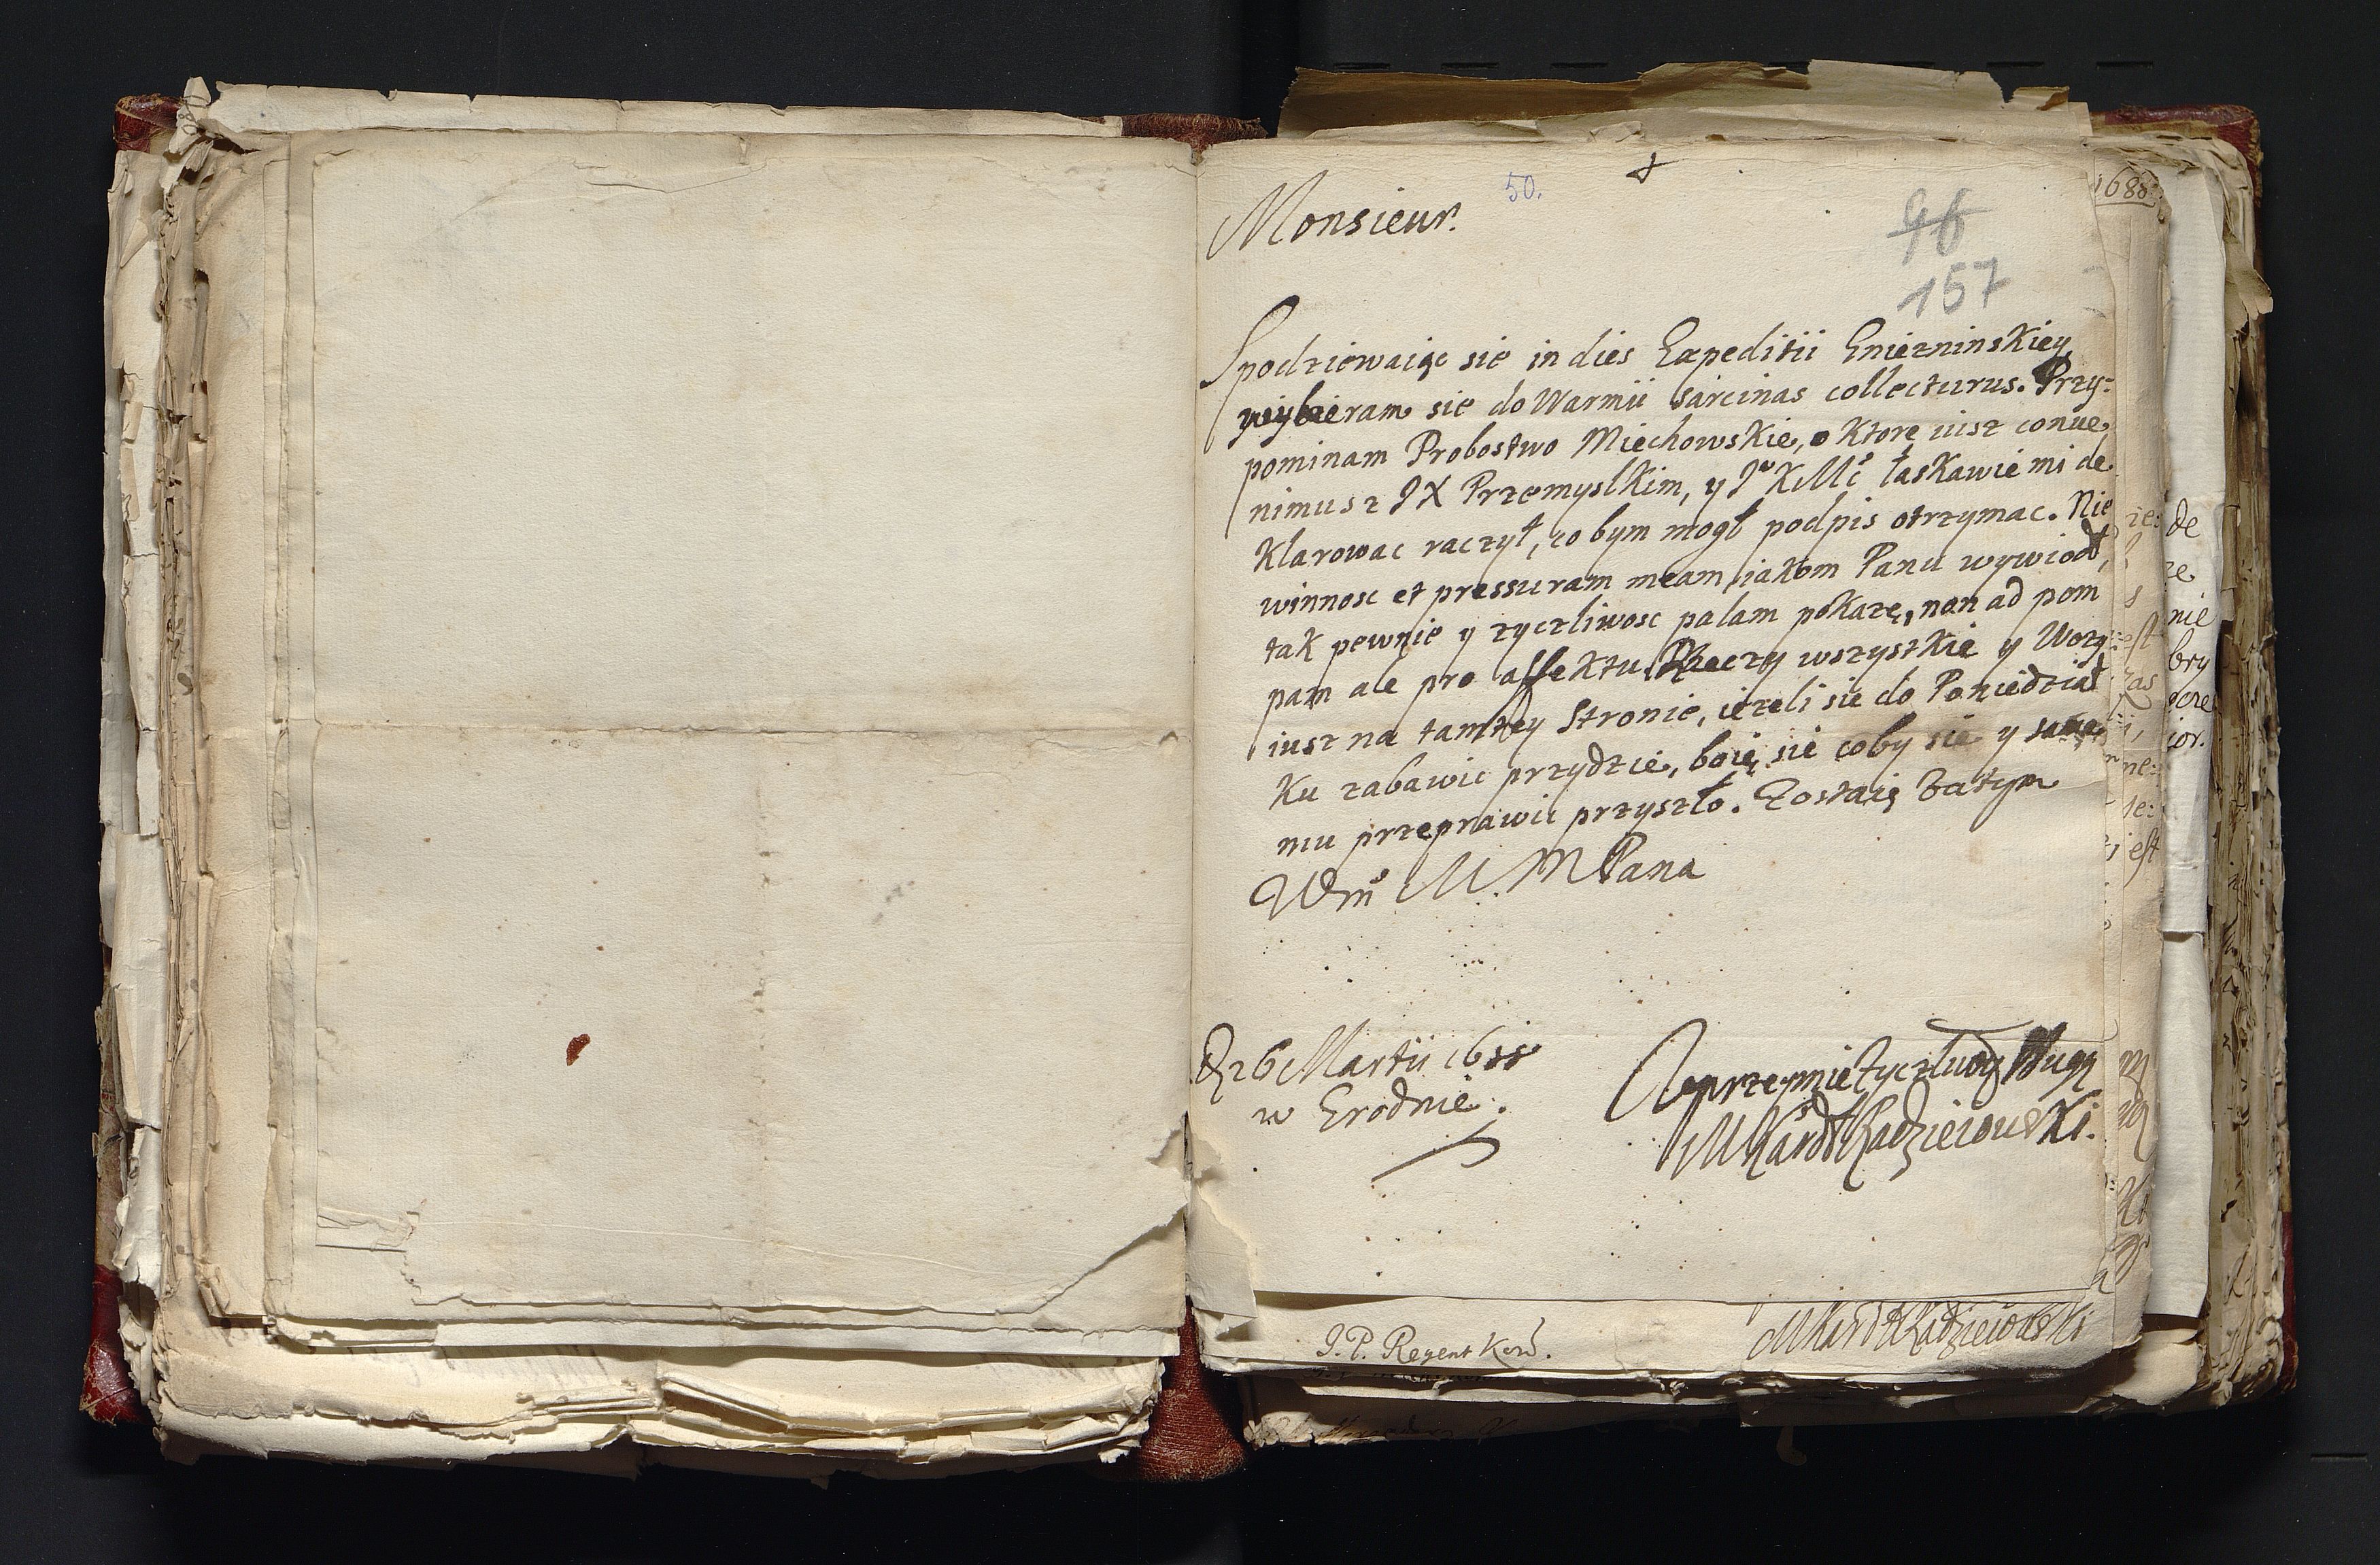 50.
Monsieur.
96
157
Spodziewaiąc sie in dies Expeditii Gniezninskiey
wybieram sie do Warmii sarcinas collecturus. Przy=
pominam Probostwo Miechowskie, o Ktore iusz conue
nimus z JX Przemyslkim, y Jº KMć łaskawie mi de
Klarowac raczył, co bym mogł podpis otrzymac. Nie
winnosc et pressuram meam, iakom Panu wywiodł,
tak pewnie y zyczliwosc palam pokazę, non ad pom
pam ale pro affektu. Rzeczy wszystkie y Wozy
iusz na tamtey Stronie, iezeli sie do Poniedział
Ku zabawic przydzie, boię sie coby sie y same
mu przeprawic przyszło. Zostaię Zatym
Wm̃ M. M Pana
D 26 Martii 1688
w Grodnie.
Uprzeymie Zyczliwy Sługa
M Kard Radzieiowski.
J. P. Regent Kor̃.
M Kard Radzieiowski
1688
de
nie
bry
ior.
est